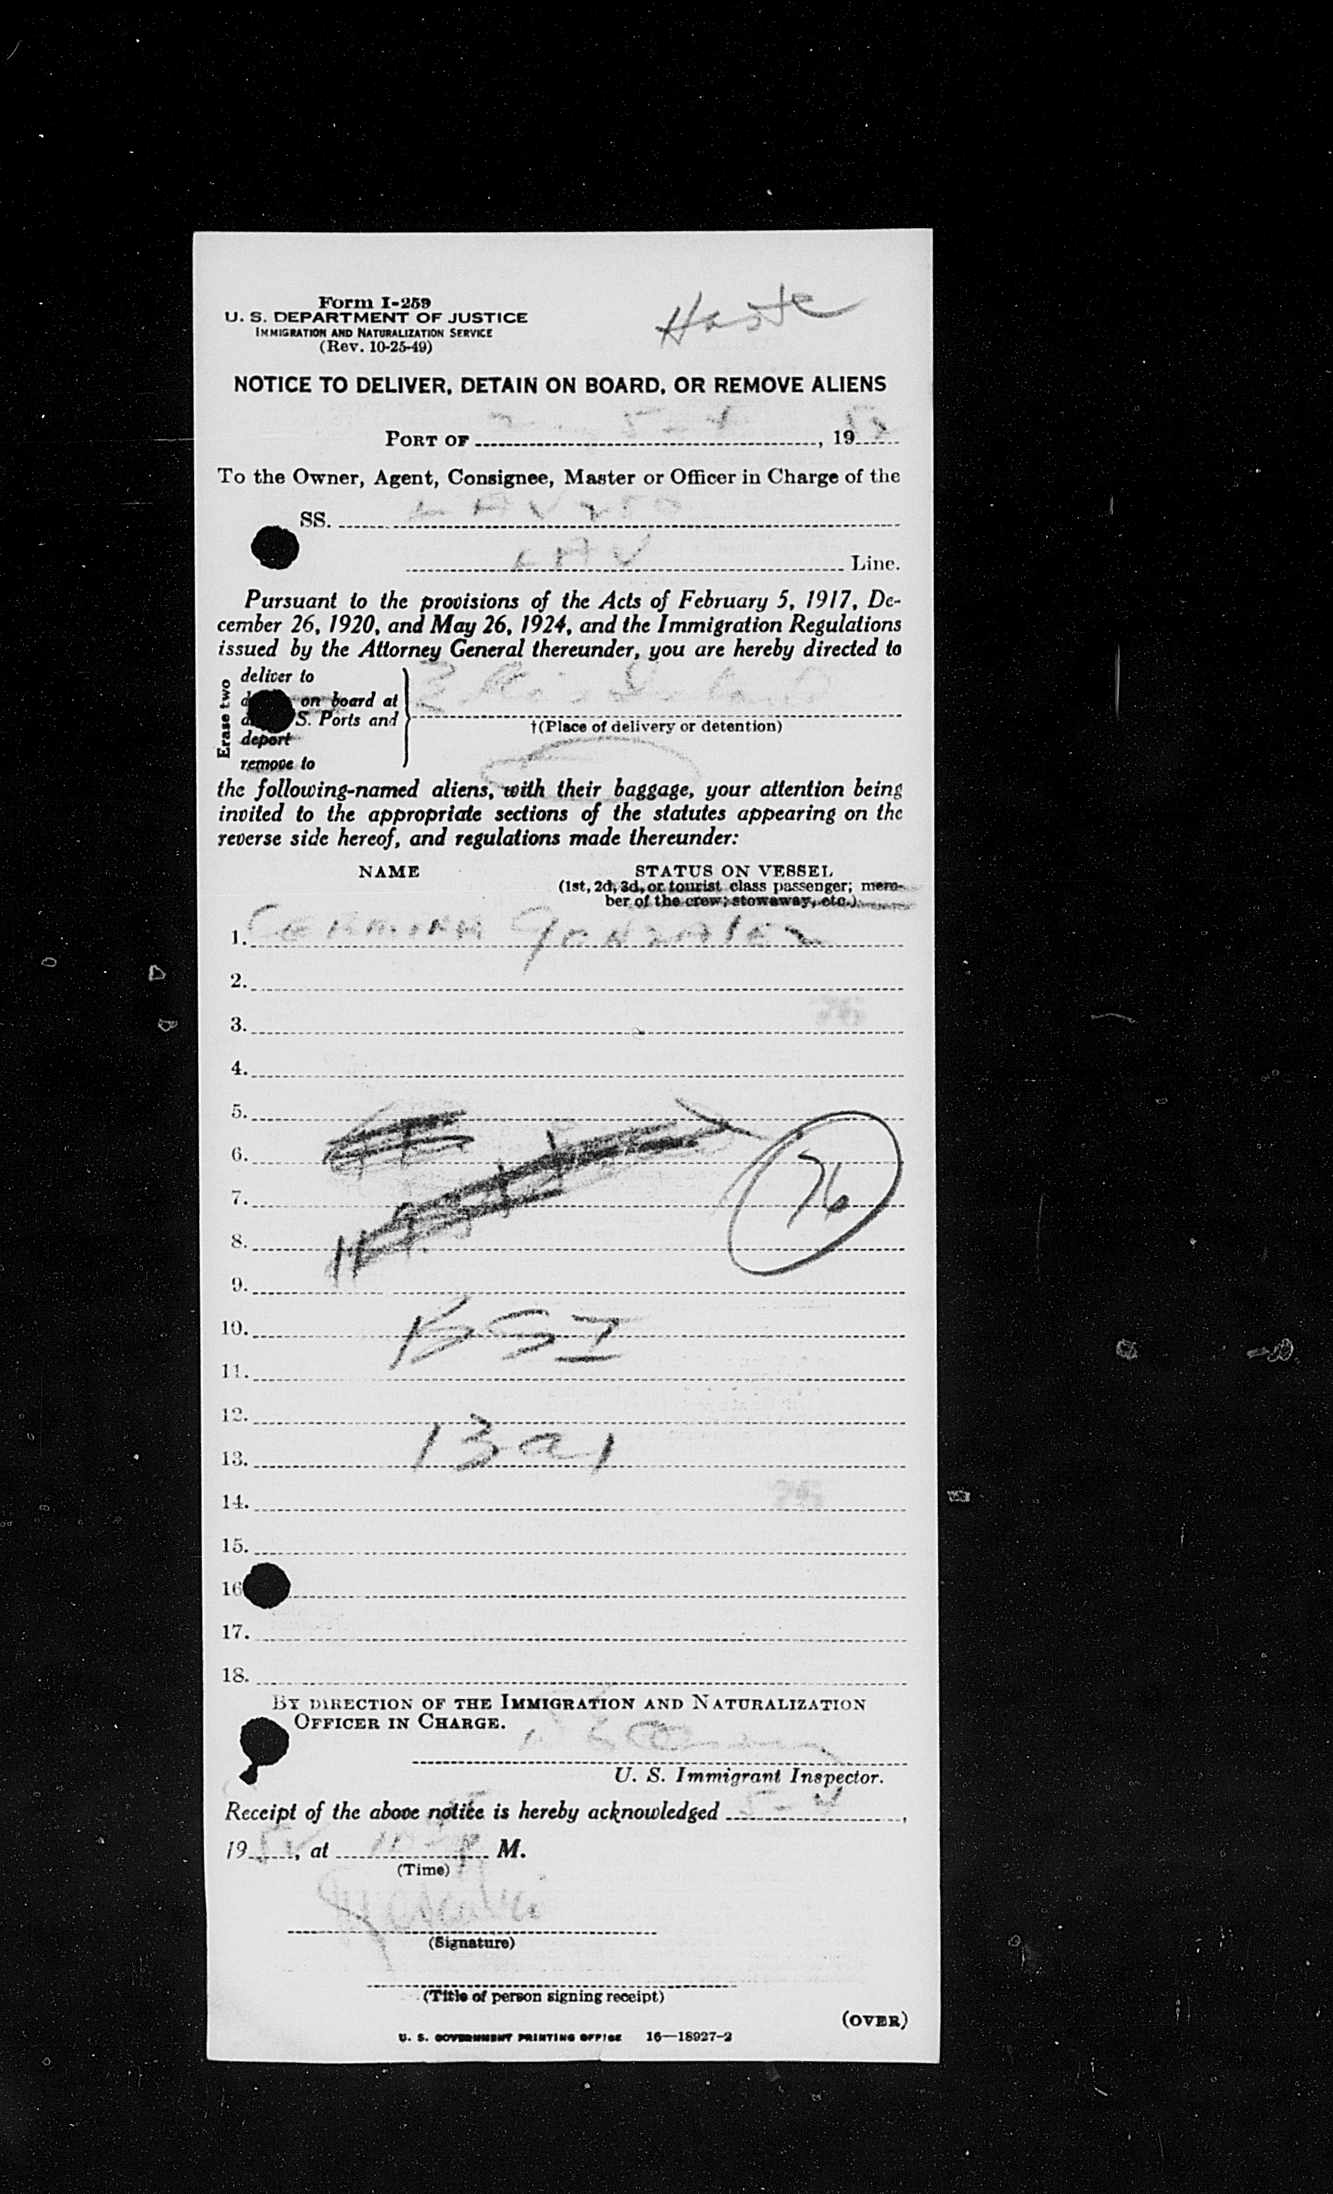 Form I-259
U. S. DEPARTMENT OF JUSTICE
IMMIGRATION AND NATURALIZATION SERVICE
(Rev. 10-25-49)
Haste
NOTICE TO DELIVER, DETAIN ON BOARD, OR REMOVE ALIENS
PORT OF 5 - 4, 1952
To the Owner, Agent, Consignee, Master or Officer in Charge of the
SS. LAV 250
LAV Line.
Pursuant to the provisions of the Acts of February 5, 1917, De-
cember 26, 1920, and May 26, 1924, and the Immigration Regulations
issued by the Attorney General thereunder, you are hereby directed to
Erase two
deliver to
on board at
S. Ports and
deport
remove to
Ellis Island
†(Place of delivery or detention)
the following-named aliens, with their baggage, your attention being
invited to the appropriate sections of the statutes appearing on the
reverse side hereof, and regulations made thereunder:
NAME STATUS ON VESSEL
(1st, 2d, 3d, or tourist class passenger; mem-
ber of the crew; stowaway, etc.)
1. Gonzalez
2.
3.
4.
5.
6.
7. 76
8.
9.
10. BSI
11.
12.
13. 13a1
14.
15.
16
17.
18.
BY DIRECTION OF THE IMMIGRATION AND NATURALIZATION
OFFICER IN CHARGE.
U. S. Immigrant Inspector.
Receipt of the above notice is hereby acknowledged 5-4,
1952, at M.
(Time)
(Signature)
(Title of person signing receipt)
(OVER)
U. S. GOVERNMENT PRINTING OFFICE 16—18927-2